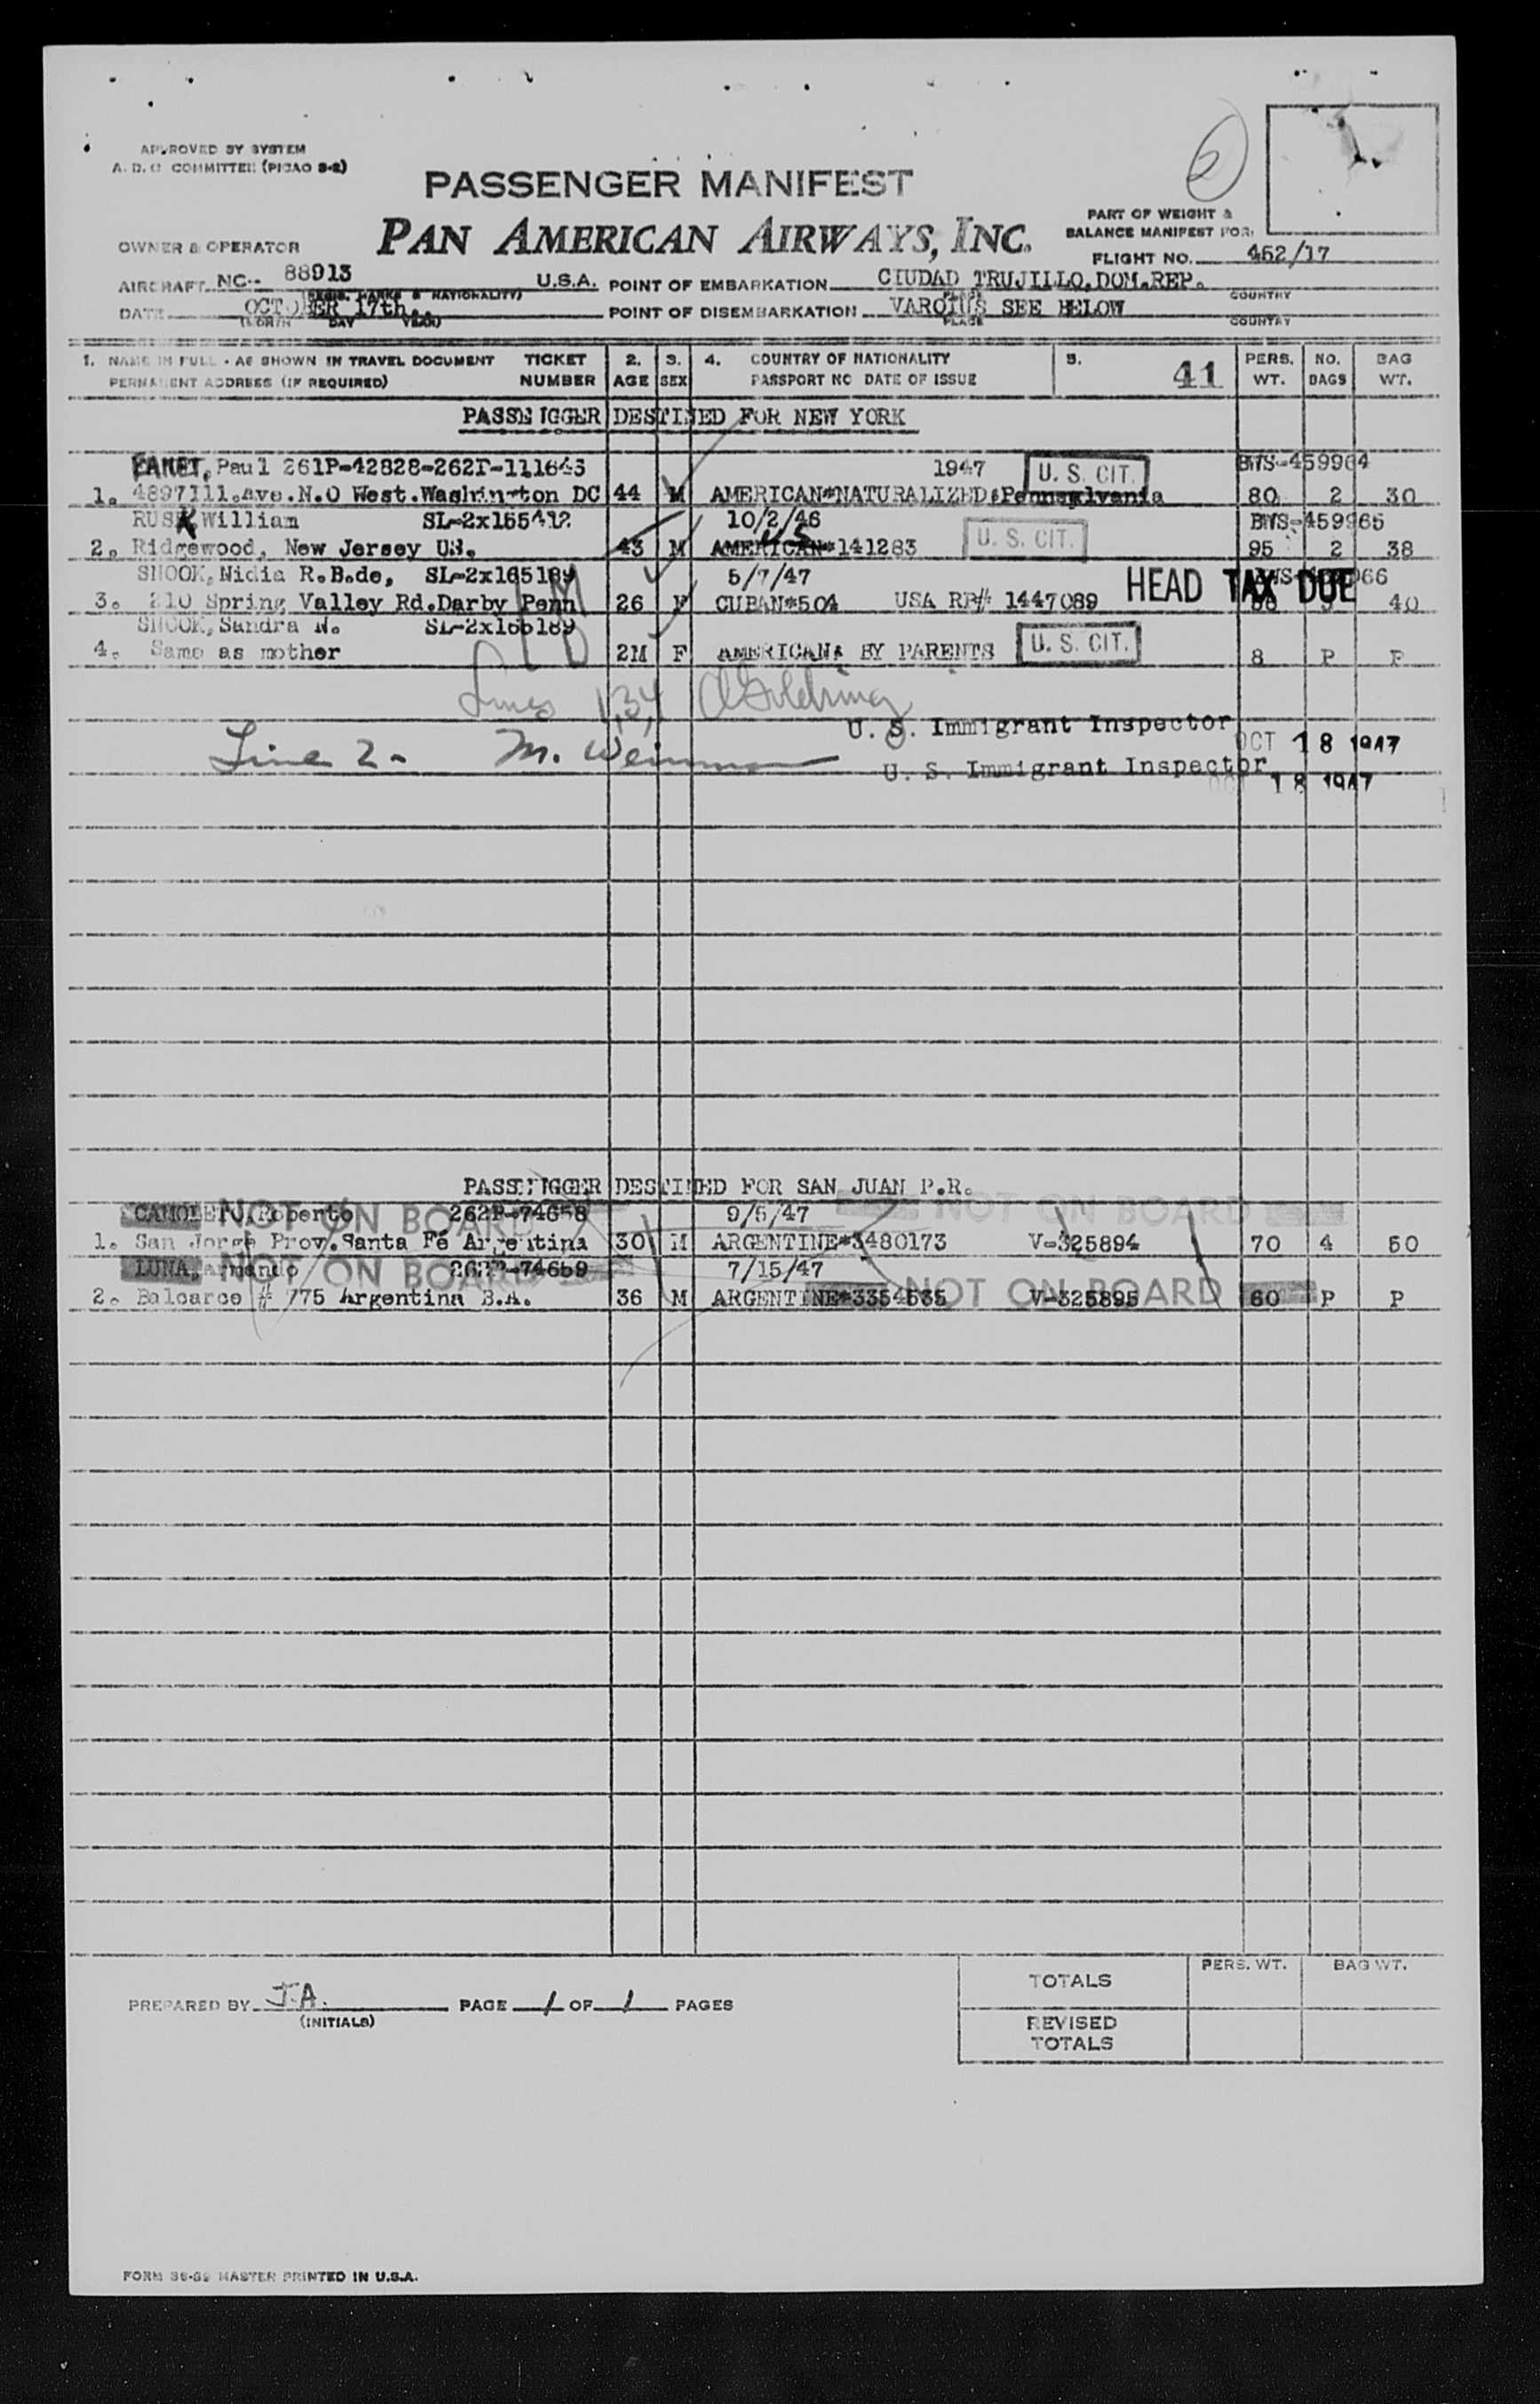 APPROVED BY SYSTEM
A. D. C COMMITTEE (PICAO 3-2)
2
PASSENGER MANIFEST
PAN AMERICAN AIRWAYS, INC.
PART OF WEIGHT &
BALANCE MANIFEST FOR:
OWNER & OPERATOR
FLIGHT NO. 452/17
AIRCHAFT NC-- 88913 U.S.A. POINT OF EMBARKATION CIUDAD TRUJILLO, DOM.REP.
(REGIS. MARKS & NATIONALITY) PLACE COUNTRY
DATE OCTOBER 17th. POINT OF DISEMBARKATION VAROIUS SEE BELOW
(MONTH DAY YEAR) PLACE COUNTRY
1. NAME IN FULL - AS SHOWN IN TRAVEL DOCUMENT TICKET 2. 3. 4. COUNTRY OF NATIONALITY 5. 41 PERS. NO. BAG
PERMANENT ADDRESS (IF REQUIRED) NUMBER AGE SEX PASSPORT NO DATE OF ISSUE WT. BAGS WT.
PASSENGGER DESTINED FOR NEW YORK
Paul 261P-42828-262T-111643 1947 U. S. CIT. BWS-459964
1. 4897111.Ave.N.O West.Washington DC 44 M AMERICAN*NATURALIZED Pennsylvania 80 2 30
William SL-2x155412 10/2/46 BWS-459965
2. Ridgewood, New Jersey US. 43 M AMERICAN*141283 US U. S. CIT. 95 2 38
SNOOK, Nidia R.B.de, SL-2x165189 5/7/47
3. 210 Spring Valley Rd.Darby Penn 26 F CUBAN*504 USA RP# 1447089 HEAD TAX DUE 40
SNOOK, Sandra N. SL-2x165189
4. Same as mother 2M F AMERICAN BY PARENTS U. S. CIT. 8 P P
Lines 1,3,4
U. S. Immigrant Inspector OCT 18 1947
Line 2 - M. Weinman
U. S. Immigrant Inspector OCT 18 1947
PASSENGGER DESTINED FOR SAN JUAN P.R.
Roberto 262P-74658 9/5/47 NOT ON BOARD NOT ON BOARD
1. San Jorge Prov.Santa Fé Argentina 30 M ARGENTINE*3480173 V-325894 70 4 50
LUNA, Armando 262P-74659 7/15/47 NOT ON BOARD
2. Balcarce # 775 Argentina B.A. 36 M ARGENTINE*3354535 V-325895 NOT ON BOARD 60 P P
TOTALS PERS. WT. BAG WT.
PREPARED BY J.A. PAGE 1 OF 1 PAGES
(INITIALS)
REVISED
TOTALS
FORM MASTER PRINTED IN U.S.A.